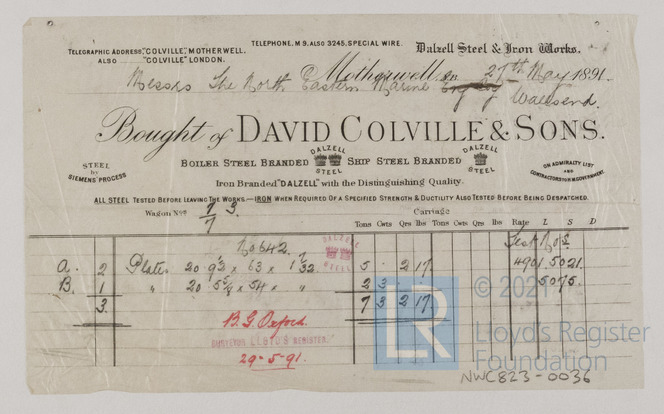 TELEPHONE. M 9. ALSO 3245, SPECIAL WIRE.
TELEGRAPHIC ADDRESS, "COLVILLE", MOTHERWELL.
ALSO "COLVILLE" LONDON.
Dalzell Steel & Iron Works.
Motherwell, on 27th May 1891.
Messrs The North Eastern Marine Eng Coy Wallsend.
Bought of DAVID COLVILLE & SONS.
STEEL by SIEMENS' PROCESS
BOILER STEEL BRANDED DALZELL STEEL SHIP STEEL BRANDED DALZELL STEEL
ON ADMIRALTY LIST AND CONTRACTORS TO H.M. GOVERNMENT.
Iron Branded "DALZELL" with the Distinguishing Quality.
ALL STEEL TESTED BEFORE LEAVING THE WORKS.—IRON WHEN REQUIRED OF A SPECIFIED STRENGTH & DUCTILITY ALSO TESTED BEFORE BEING DESPATCHED.
Wagon Nos
Carriage
Tons Cwts Qrs lbs Tons Cwts Qrs lbs Rate £ S D
No 642. DALZELL STEEL Test Nos.
A. 2 Plates 20 9½ × 63 × 1 7/32 5 - 2 17 4901 5021.
B. 1 " 20 × 54 × " 2 3 5075.
3. 7 3 2 17
B.G. Oxford.
LLOYD'S REGISTER.
29-5-91.
© 2021
LR
Lloyd's Register
Foundation
NWC823-0036